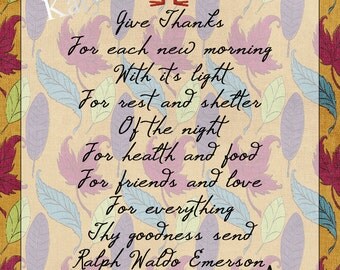 Give Thanks
For each new morning
With its light
For rest and shelter
Of the night
For health and food
For friends and love
For everything
Thy goodness send
Ralph Waldo Emerson